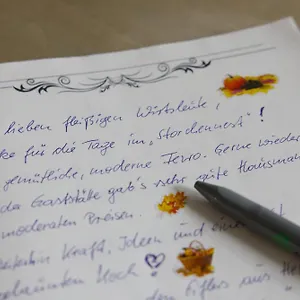 lieben fleißigen Wirtsleute,
ke für die Tage im „Storchennest“!
gemütliche, moderne Fewo. Gerne wieder
der Gaststätte gab's sehr gute Hausman
moderaten Preisen.
Kraft, Ideen und ein
Hoch!
den aus